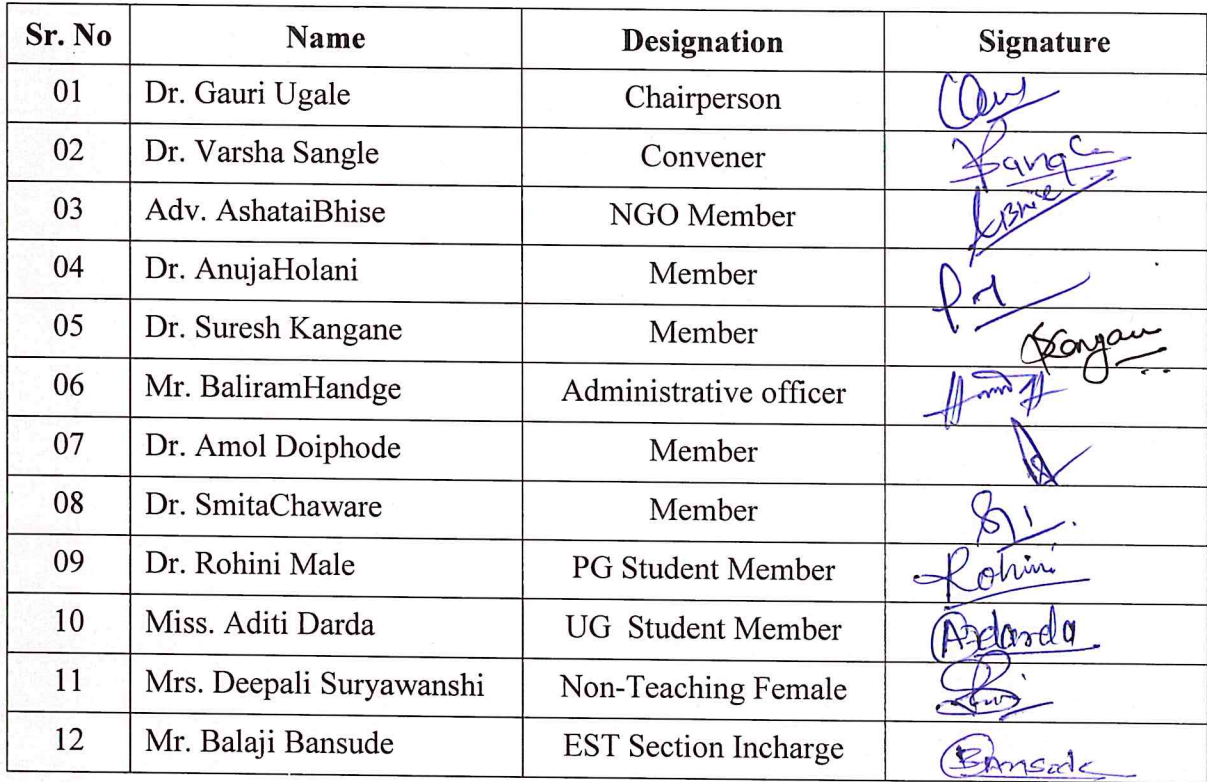 Sr. No Name Designation Signature
01 Dr. Gauri Ugale Chairperson
02 Dr. Varsha Sangle Convener
03 Adv. AshataiBhise NGO Member ABhise
04 Dr. AnujaHolani Member
05 Dr. Suresh Kangane Member
06 Mr. BaliramHandge Administrative officer
07 Dr. Amol Doiphode Member
08 Dr. SmitaChaware Member
09 Dr. Rohini Male PG Student Member Rohini
10 Miss. Aditi Darda UG Student Member
11 Mrs. Deepali Suryawanshi Non-Teaching Female
12 Mr. Balaji Bansude EST Section Incharge